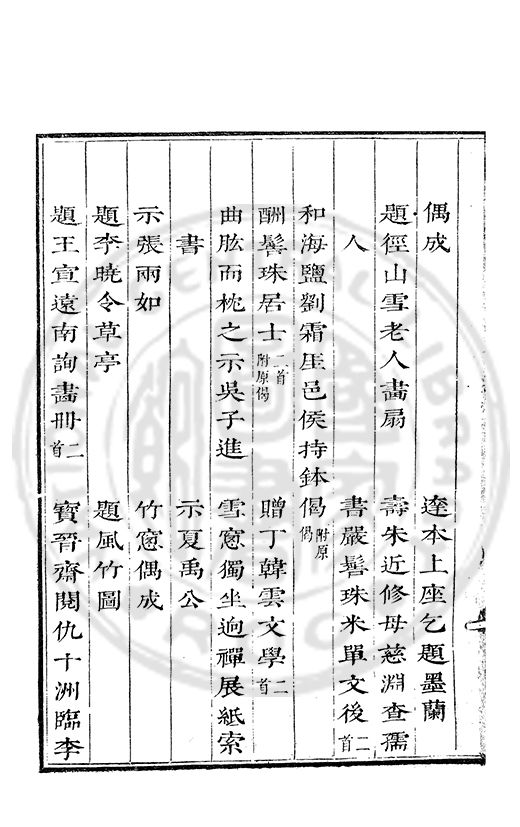 偶成　達本上座乞題墨蘭
題徑山雪老人畫扇　壽朱近修母慈淵查孺
人　書嚴髻珠米單文後二首
和海鹽劉霜厓邑侯持鉢偈附原偈
酬髻珠居士二首附原偈　贈丁韓雲文學二首
曲肱而枕之示吳子進　雪窻獨坐逈禪展紙索
書　示夏禹公
示張雨如　竹窻偶成
題李曉令草亭　題風竹圖
題王宣遠南詢畵冊二首　寶晉齋閱仇十洲臨李